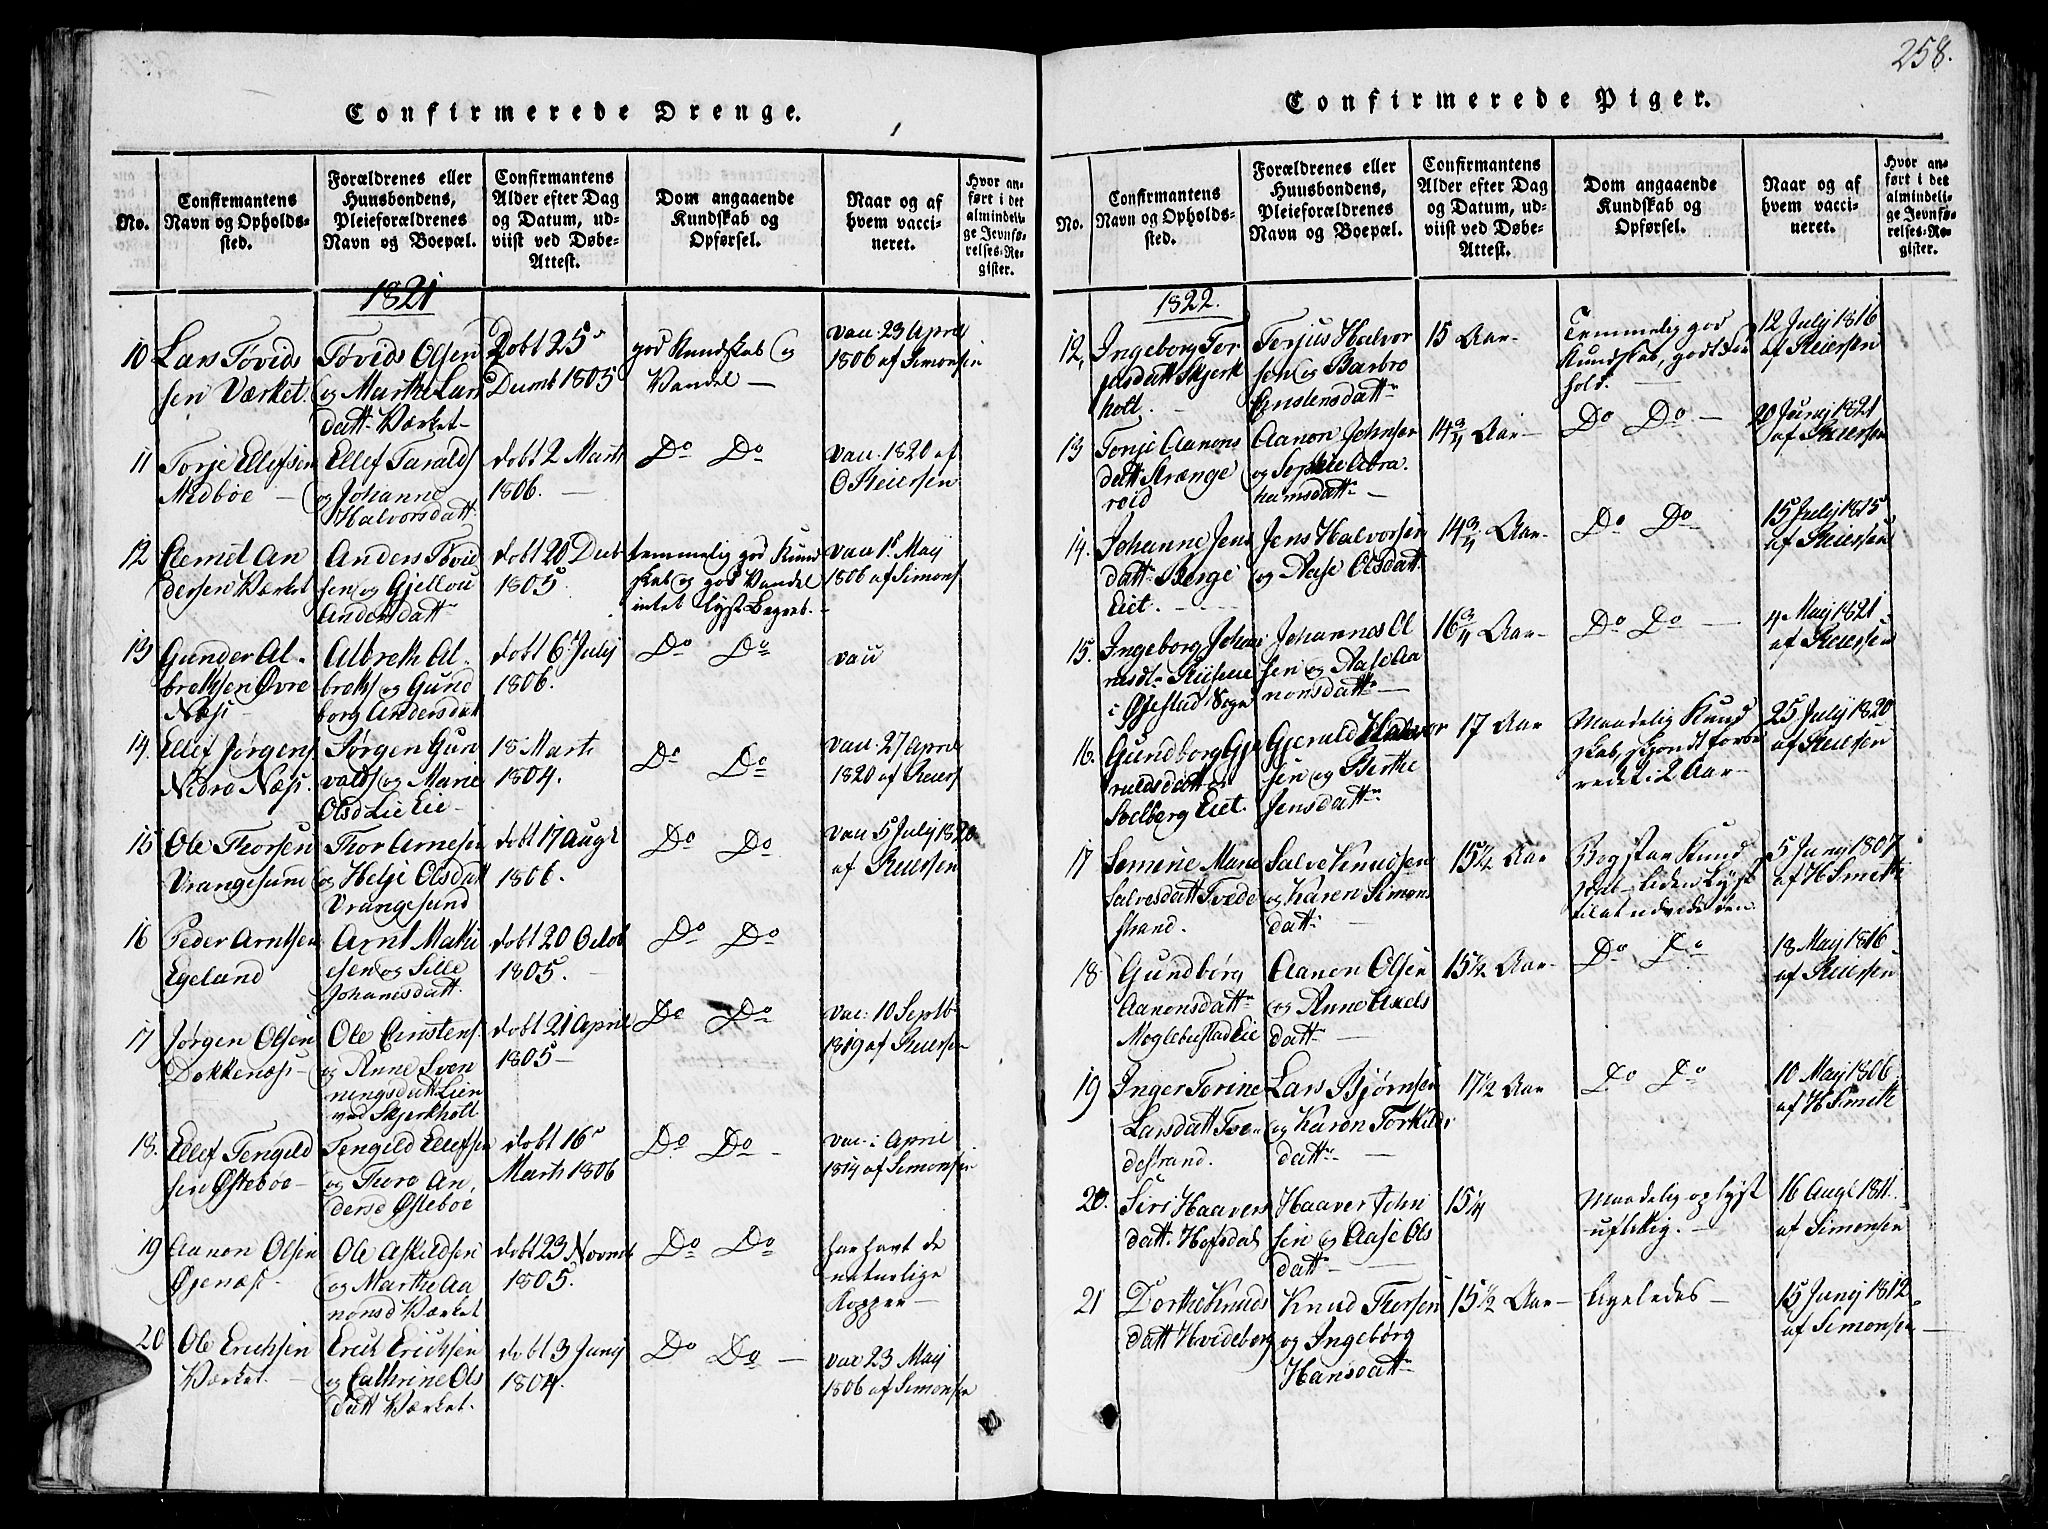 258.
Confirmerede Drenge.
No.
Confirmantens
Navn og Opholds-
sted.
Forældrenes eller
Huusbondens,
Pleieforældrenes
Navn og Boepæl.
Confirmantens
Alder efter Dag
og Datum, ud-
viist ved Døbe-
Attest.
Dom angaaende
Kundskab og
Opførsel.
Naar og af
hvem vacci-
neret.
Hvor an-
ført i det
almindeli-
ge Jevnfø-
relses-Re-
gister.
1821
10
Lars Tøvids
sen Værket.
Tøvids Olsen
og Marthe Lars
datt. Værket
Dobt 25de
Decmb 1805
god Kundskab og
Vandel
vac. 23 April
1806 af Simonsen
11
Torje Ellefsen
Nedbøe
Ellef Taralds
og Johanne
Halvorsdatt
dobt 2 Marts
1806.
Do Do
vac. 1820 af
O Reiersen
12
Clemet An
dersen Værket
Anders Tøvid
sen og Gjellou
Andersdatt
dobt 20 Decb
1805
temmelig god Kund
skab og god Vandel
intet lyst Begreb.
vac 1ste Maij
1806 af Simons
13
Gunder Al-
brektsen Øvre
Næs
Albreth Al-
breths og Gund
borg Andersdatt
dobt 6te Julij
1806.
Do Do
vac
14.
Ellef Jørgens
Nedre Næs
Jørgen Gun
valds og Marie
Olsd Lie Eie
18 Marts
1804.
Do Do
vac. 27 April
1820 af Reiers
15
Ole Thorsen
Vrangesund
Thor Arnesen
og Helje Olsdatt
Vrangesund
dobt 17 Augt
1806.
Do Do
vac 5 Julij 1820
af Reiersen
16
Peder Arntsen
Egeland
Arnt Mathi
esen og Sille
Johanisdatt.
dobt 20 Octob
1805.
Do Do
17
Jørgen Olsen
Dokkenæs
Ole Christens.
og Anne Sven
ningsdatt Lien
ved Skjerkholt
dobt 21 April
1805
Do Do
vac: 10 Septb
1819 af Reiersen
18.
Ellef Tengild
sen Østebøe
Tengild Ellefsen
og Thora An
dersd Østebøe
dobt 16de
Marts 1806
Do Do
vac. i April
1814 af Simonsen
19
Aanon Olsen
Øjenæs
Ole Askildsen
og Marthe Aa
nonsd Værket
dobt 23 Novmb
1805.
Do Do
har havt de
naturlige
Kopper
20
Ole Erichsen
Værket.
Erich Erichsen
og Cathrine Ols
datt Værket.
dobt 3 Junij
1804.
Do Do
vac 23 Maij
1806 af Simonsen
Confirmerede Piger.
No.
Confirmantens
Navn og Opholds-
sted.
Forældrenes eller
Huusbondens,
Pleieforældrenes
Navn og Boepæl.
Confirmantens
Alder efter Dag
og Datum, ud-
viist ved Døbe-
Attest.
Dom angaaende
Kundskab og
Opførsel.
Naar og af
hvem vacci-
neret.
Hvor an-
ført i det
almindeli-
ge Jevnfø-
relses-Re-
gister.
1822.
12,
Ingeborg Ter
jusdatt Skjerk
holt.
Terjus Halvor
sen og Barbro
15 Aar
Temmelig god
Kundskab, godt For
hold.
12 Julij 1816
af Reiersen
13
Tonje Aanons
datt Strænge
reid
Aanon Johnsen
og Sophie Abra.
hamsdatt
14 3/4 Aar
Do Do
20 Junij 1821
af Reiersen
14.
Johanne Jens
datt Berge
Eiet.
Jens Halvorsen
og Aase Olsdatt
14 3/4 Aar
Do Do
15 Julij 1815
af Reiersen
15.
Ingeborg Johan
i Øjestad Sogn
Johannes Ol
sen og Aase Aa
nonsdatt
16 3/4 Aar
Do Do
4 Maij 1821
af Reiersen
16.
Gundborg Gje
ruldsdatt
Solberg Eiet.
Gjeruld Halvor
sen og Berthe
Jensdatt
17 Aar
Maadelig Kund
skab, skjøndt forbe
redet i 2 Aar
25 Julij 1820
af Reiersen
17
Semine Marie
Salvesdatt Tvede
strand.
Salve Knudsen
og Karen Simons
datt.
15 1/2 Aar
Bogstav Kund
skab liden Lyst
til at udvide den
5 Junij 1807
af H Smith
18
Gundborg
Aanonsdatt
Moglebustad Eie
Aanon Olsen
og Anne Axels
datt
15 1/2 Aar
Do Do
18 Maij 1816
af Reiersen
19
Inger Torine
Larsdatt Tve
destrand.
Lars Bjørnsen
og Karen Torkilds
datt
17 1/2 Aar
Do Do
10 Maij 1806
af H Smith
20.
Siri Haavers
datt. Hofsdal
Haaver John
sen og Aase Ols
datt
15 1/4
Maadelig oplyst
uflittig.
16 Augt 1811.
af Simonsen
21
Dorthe Knuds
datt Hvideberg
Knud Thorsen
og Ingebørg
Hansdatt
15 1/2 Aar
Ligeledes
15 Junij 1812
af Simonsen